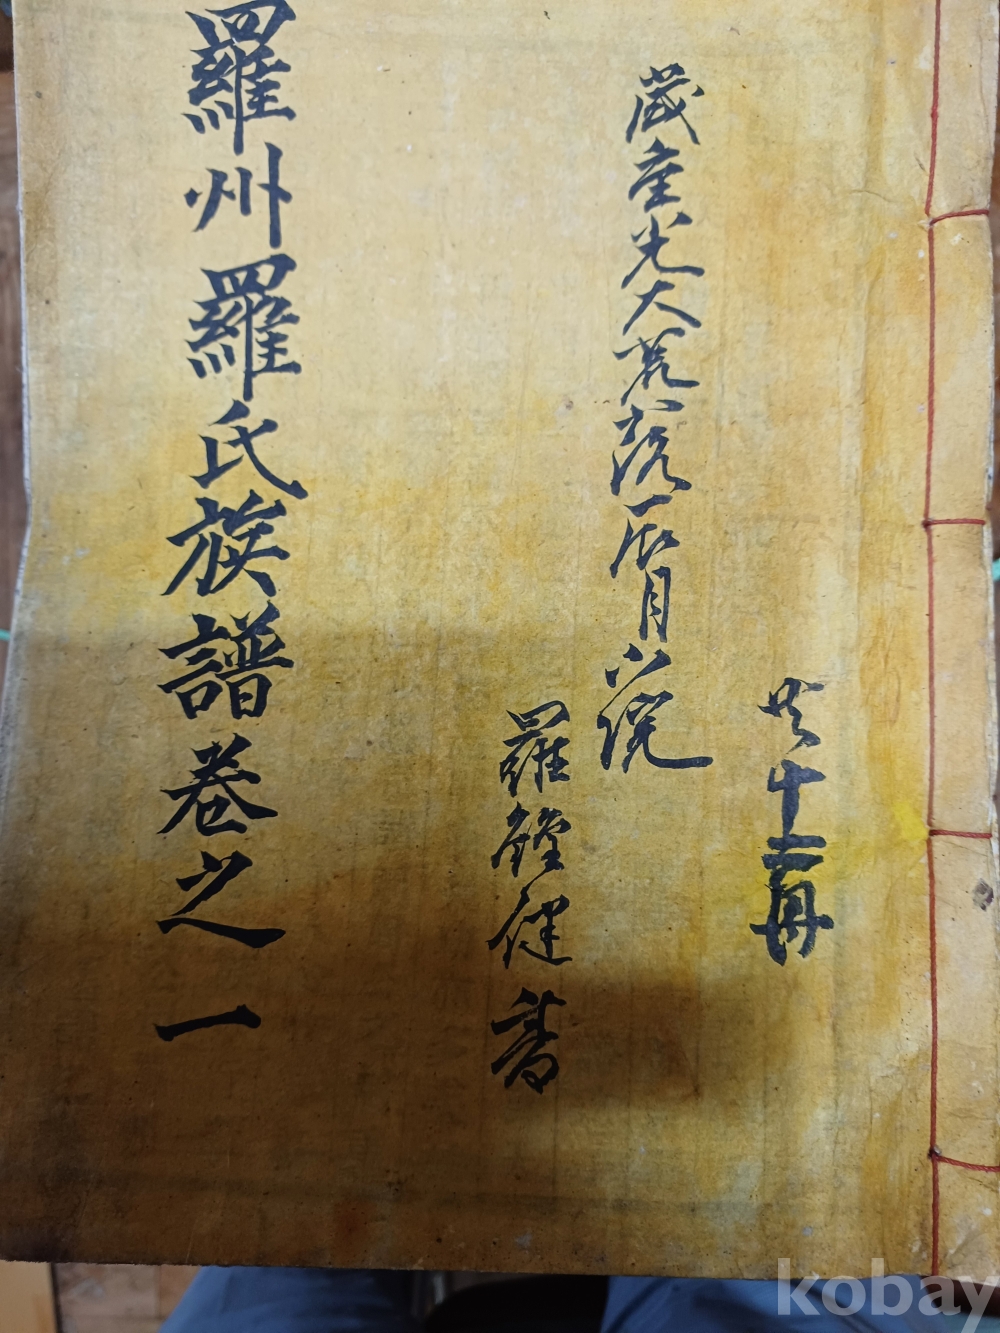 共十二冊
歲重光大荒落辰月浣
羅健書
羅州羅氏族譜卷之一
kobay